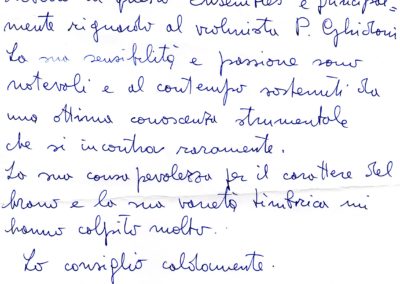 questo ensembles e principal=
mente riguardo al violinista P. Ghidoni
La sua sensibilità e passione sono
notevoli e al contempo sostenuti da
una ottima conoscenza strumentale
che si incontra raramente.
La sua consapevolezza per il carattere del
brano e la sua varietà timbrica mi
hanno colpito molto.
Lo consiglio caldamente.